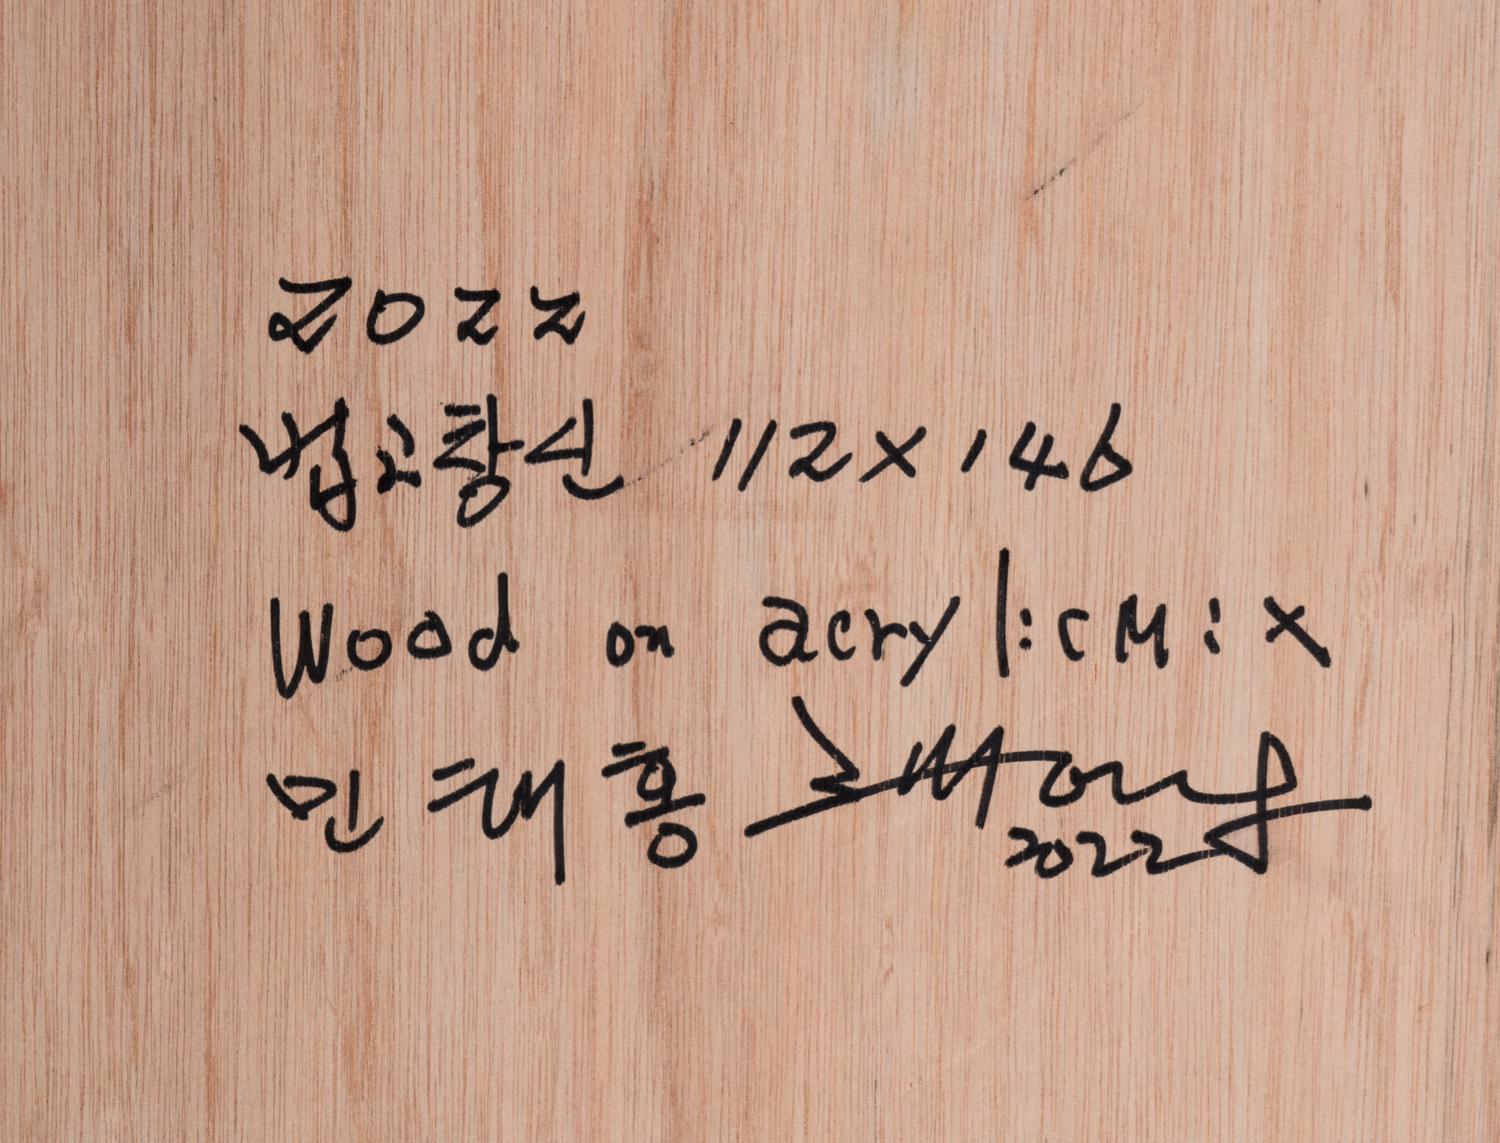 2022
법고창신 112×146
Wood on acrylic Mix
민태홍
2022